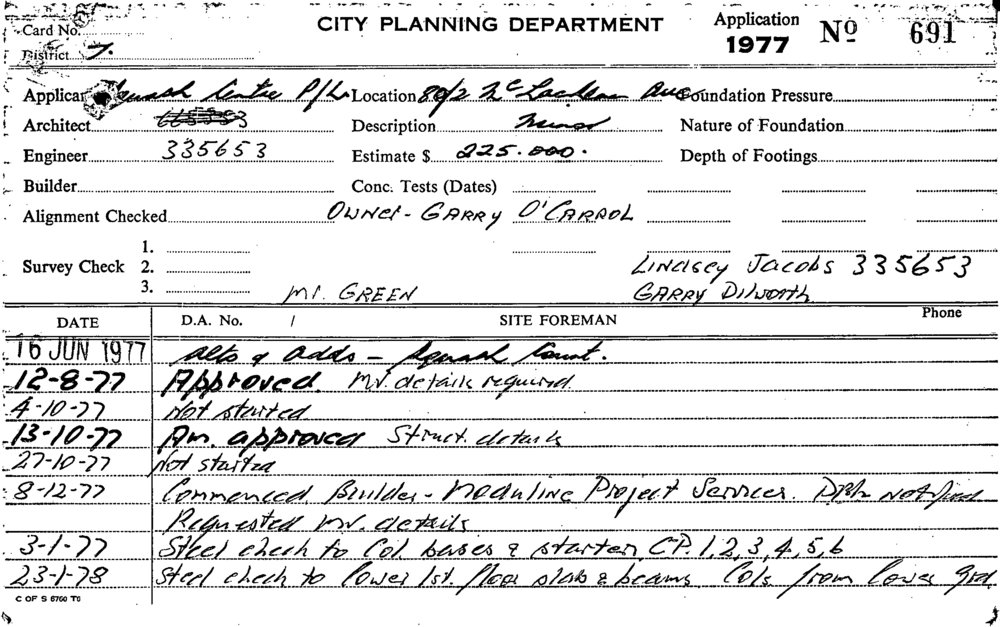 Card No. CITY PLANNING DEPARTMENT Application 1977 Nº 691
District 7.
Applicant Squash Centre P/L. Location 80/2 McLachlan Ave Foundation Pressure
Architect Description Minor Nature of Foundation
Engineer 335653 Estimate $ 225.000. Depth of Footings
Builder Conc. Tests (Dates)
Alignment Checked Owner - GARRY O'CARROL
1.
Survey Check 2. Lindsey Jacobs 335653
3. Mr. GREEN GARRY Dilworth
DATE D.A. No. / SITE FOREMAN Phone
16 JUN 1977 alts & adds - Squash Court.
12-8-77 Approved Mv. details required
4-10-77 Not started
13-10-77 Am. approved Struct. details
27-10-77 Not started
8-12-77 Commenced Builder - Moduline Project Services.
Requested mv. details
3-1-77 Steel check to Col bases & starters C.P. 1,2,3,4,5,6
23-1-78 Steel check to lower 1st. floor slabs & beams Cols from lower grd.
C OF S 6760 T0